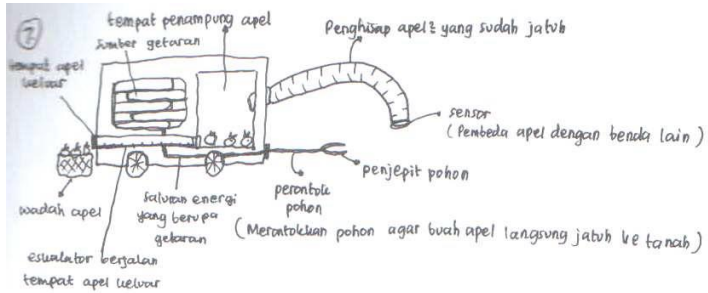 7
tempat penampung apel
sumber getaran
tempat apel
keluar
Penghisap apel² yang sudah jatuh
sensor
(Pembeda apel dengan benda lain)
penjepit pohon
perontok
pohon
(Merontokkan pohon agar buah apel langsung jatuh ke tanah)
saluran energi
yang berupa
getaran
wadah apel
eskalator berjalan
tempat apel keluar